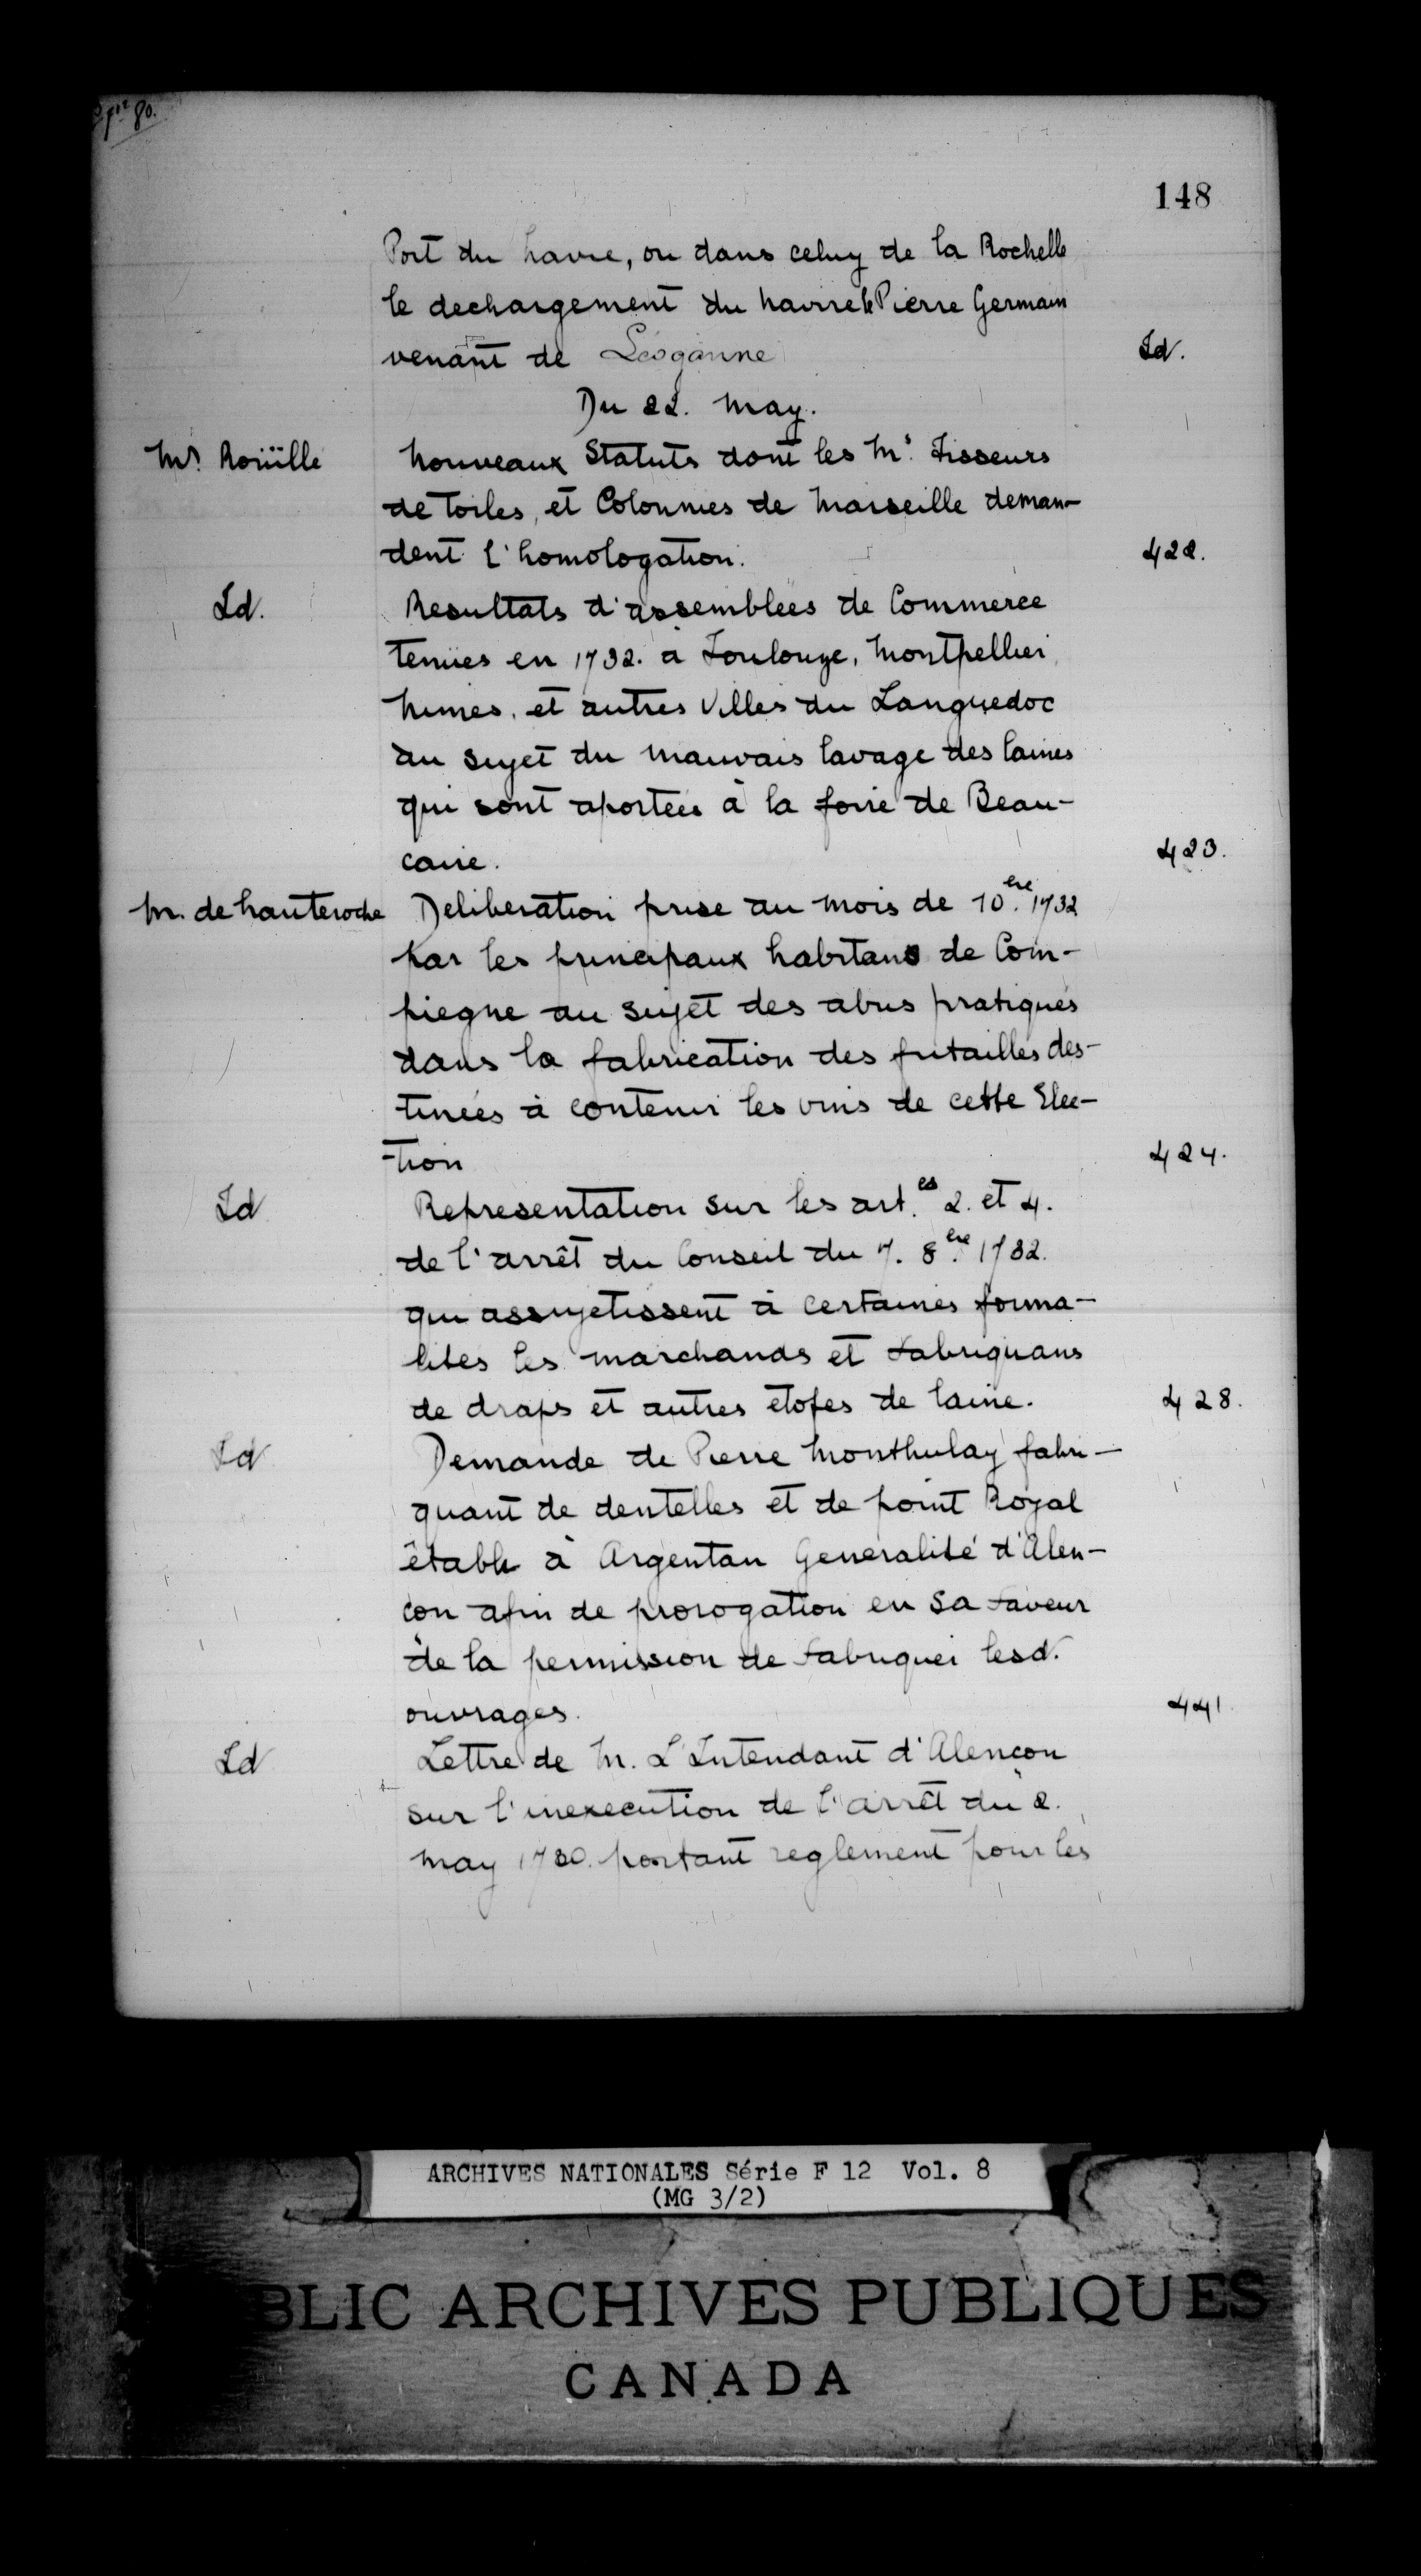 148
Port du havre, ou dans celuy de la Rochelle
le dechargement du navire le Pierre Germain
venant de Léoganne Id.
Du 22. May.
Mr. Roüille Nouveaux Statuts dont les Mrs. Tisseurs
de toiles, et Cotonnies de Marseille deman-
dent l'homologation. 422.
Id. Resultats d'assemblées de Commerce
tenües en 1732. a Toulouze, Montpellier,
Nimes, et autres Villes du Languedoc
au sujet du mauvais lavage des laines
qui sont aportées à la foire de Beau-
caire. 423.
M. de hauteroche Deliberation prise au mois de 10.bre 1732
par les principaux habitans de Com-
piegne au sujet des abus pratiqués
dans la fabrication des futailles des-
tinées à contenir les vins de cette Elec-
-tion 424.
Id Representation sur les art.es 2. et 4.
de l'arrêt du Conseil du 7. 8.bre 1732.
qui assujetissent à certaines forma-
lités les marchands et fabriquans
de draps et autres étofes de laine. 428.
Id Demande de Pierre Monthulay fabri-
quant de dentelles et de point Royal
établi à Argentan Generalité d'Alen-
çon afin de prorogation en sa faveur
de la permission de fabriquer lesd.
ouvrages. 441.
Id Lettre de M. L'Intendant d'Alençon
sur l'inexecution de l'arrêt du 2.
may 1730. portant reglement pour les
ARCHIVES NATIONALES Série F 12 Vol. 8
(MG 3/2)
BLIC ARCHIVES PUBLIQUES
CANADA